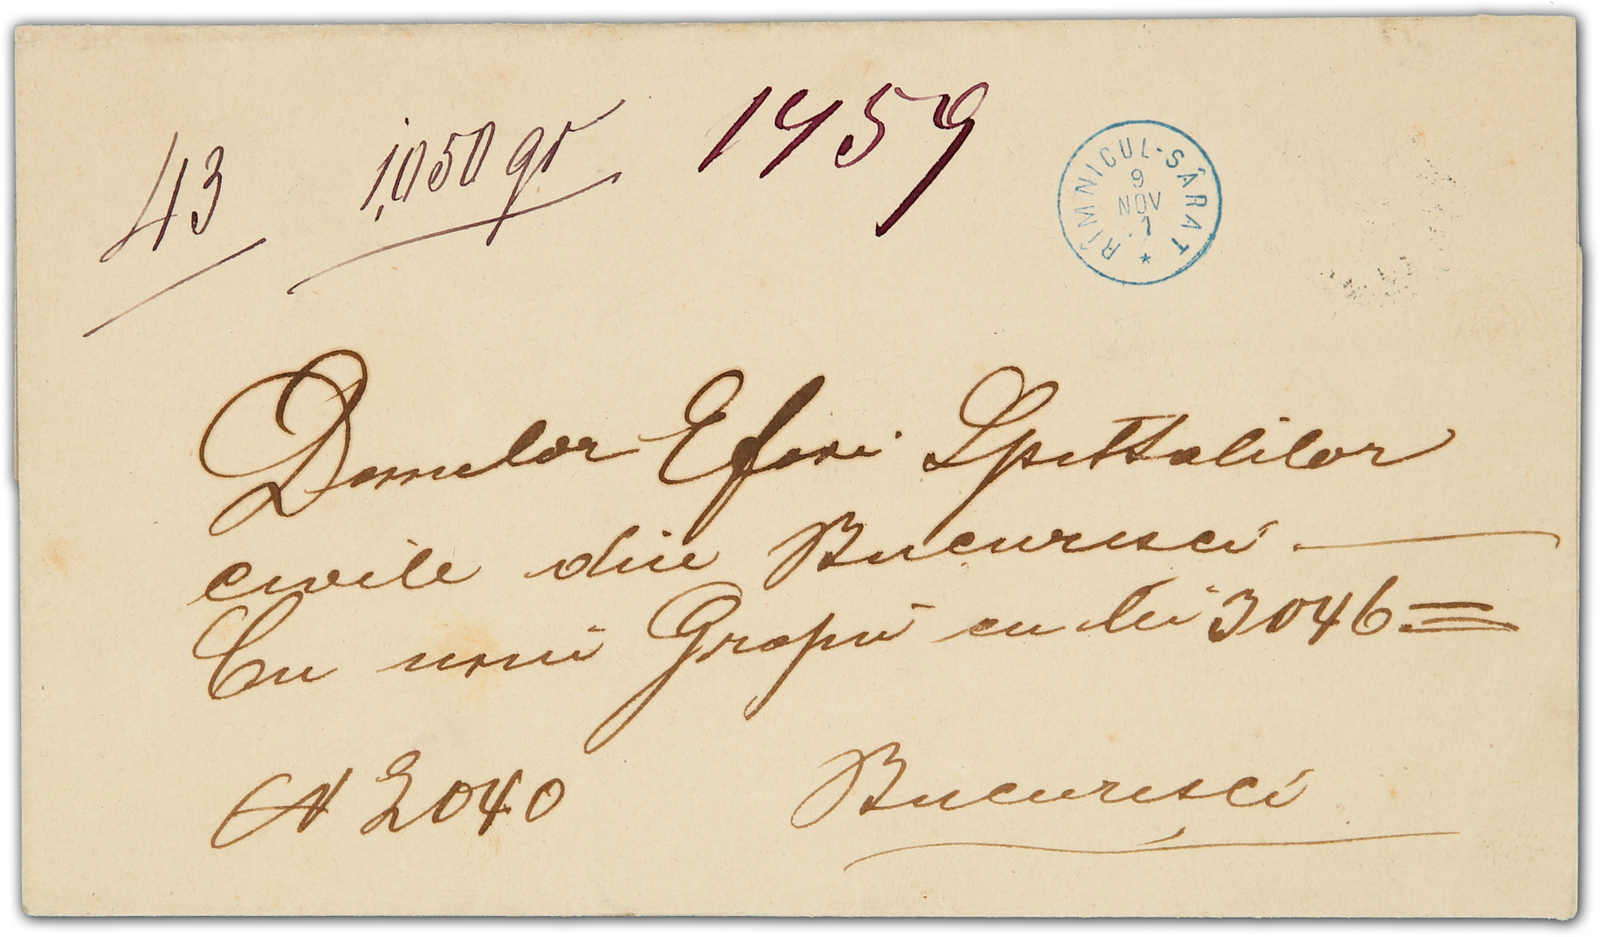 43 1,050 gr 1459
RÎMNICUL-SĂRAT
9
NOV
7
Domnilor Efori Spittalilor
civile din Bucuresci
Cu unu Gropu cu lei 3046
N 2040 Bucuresci